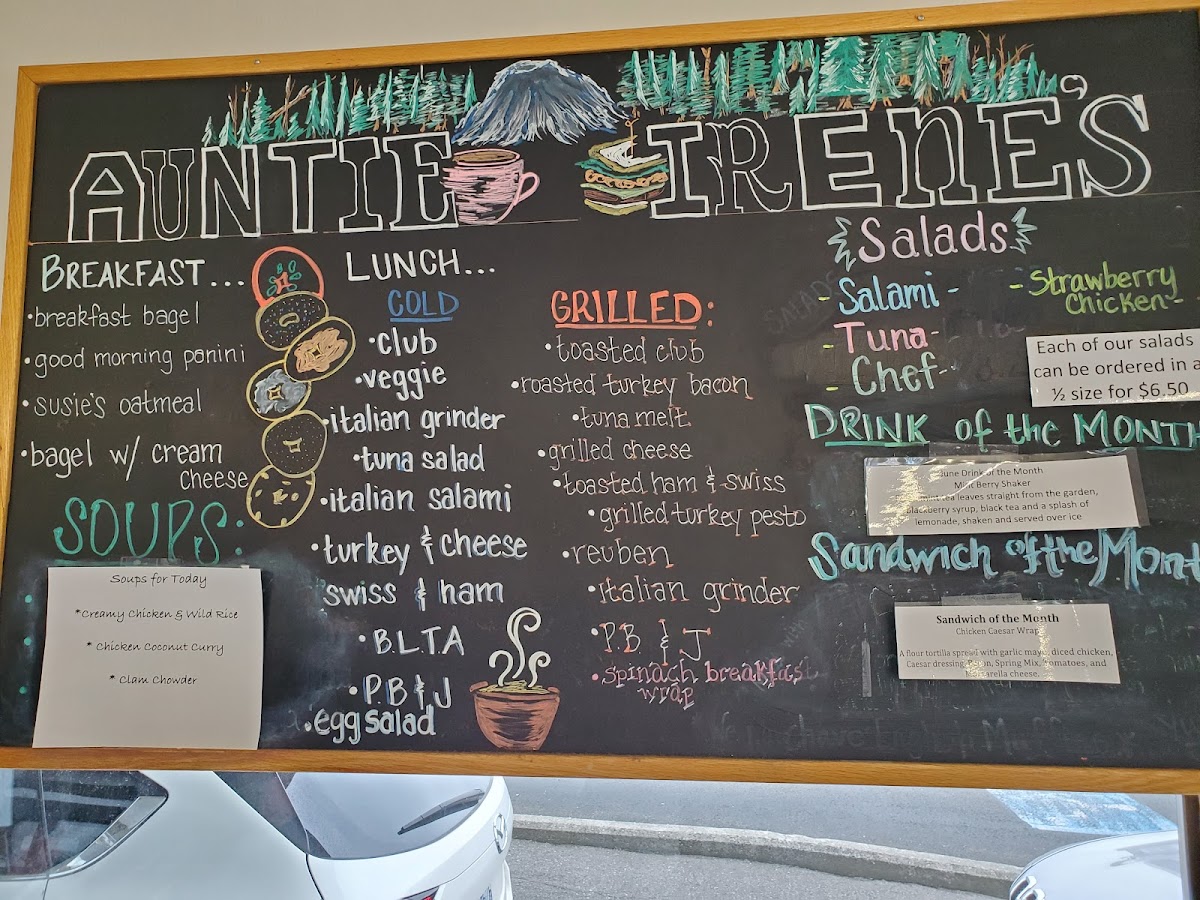 AUNTIE IRENE'S
BREAKFAST...
•breakfast bagel
•good morning panini
•susie's oatmeal
•bagel w/ cream
cheese
SOUPS:
Soups for Today
*Creamy Chicken & Wild Rice
* Chicken Coconut Curry
* Clam Chowder
LUNCH...
COLD
•club
•veggie
•italian grinder
•tuna salad
•italian salami
•turkey & cheese
swiss & ham
•B.L.T.A
•P.B & J
•egg salad
GRILLED:
•toasted club
•roasted turkey bacon
•tuna melt
•grilled cheese
•toasted ham & swiss
•grilled turkey pesto
•reuben
•italian grinder
•P.B & J
•spinach breakfast
wrap
Salads
-Salami-
-Tuna-
-Chef-
-Strawberry
Chicken-
Each of our salads
can be ordered in a
½ size for $6.50
DRINK of the MONTH
June Drink of the Month
Mint Berry Shaker
tea leaves straight from the garden,
blackberry syrup, black tea and a splash of
lemonade, shaken and served over ice
SANDWICH of the Mont
Sandwich of the Month
Chicken Caesar Wrap
A flour tortilla spread with garlic mayo, diced chicken,
Caesar dressing, Spring Mix, tomatoes, and
Mozzarella cheese.